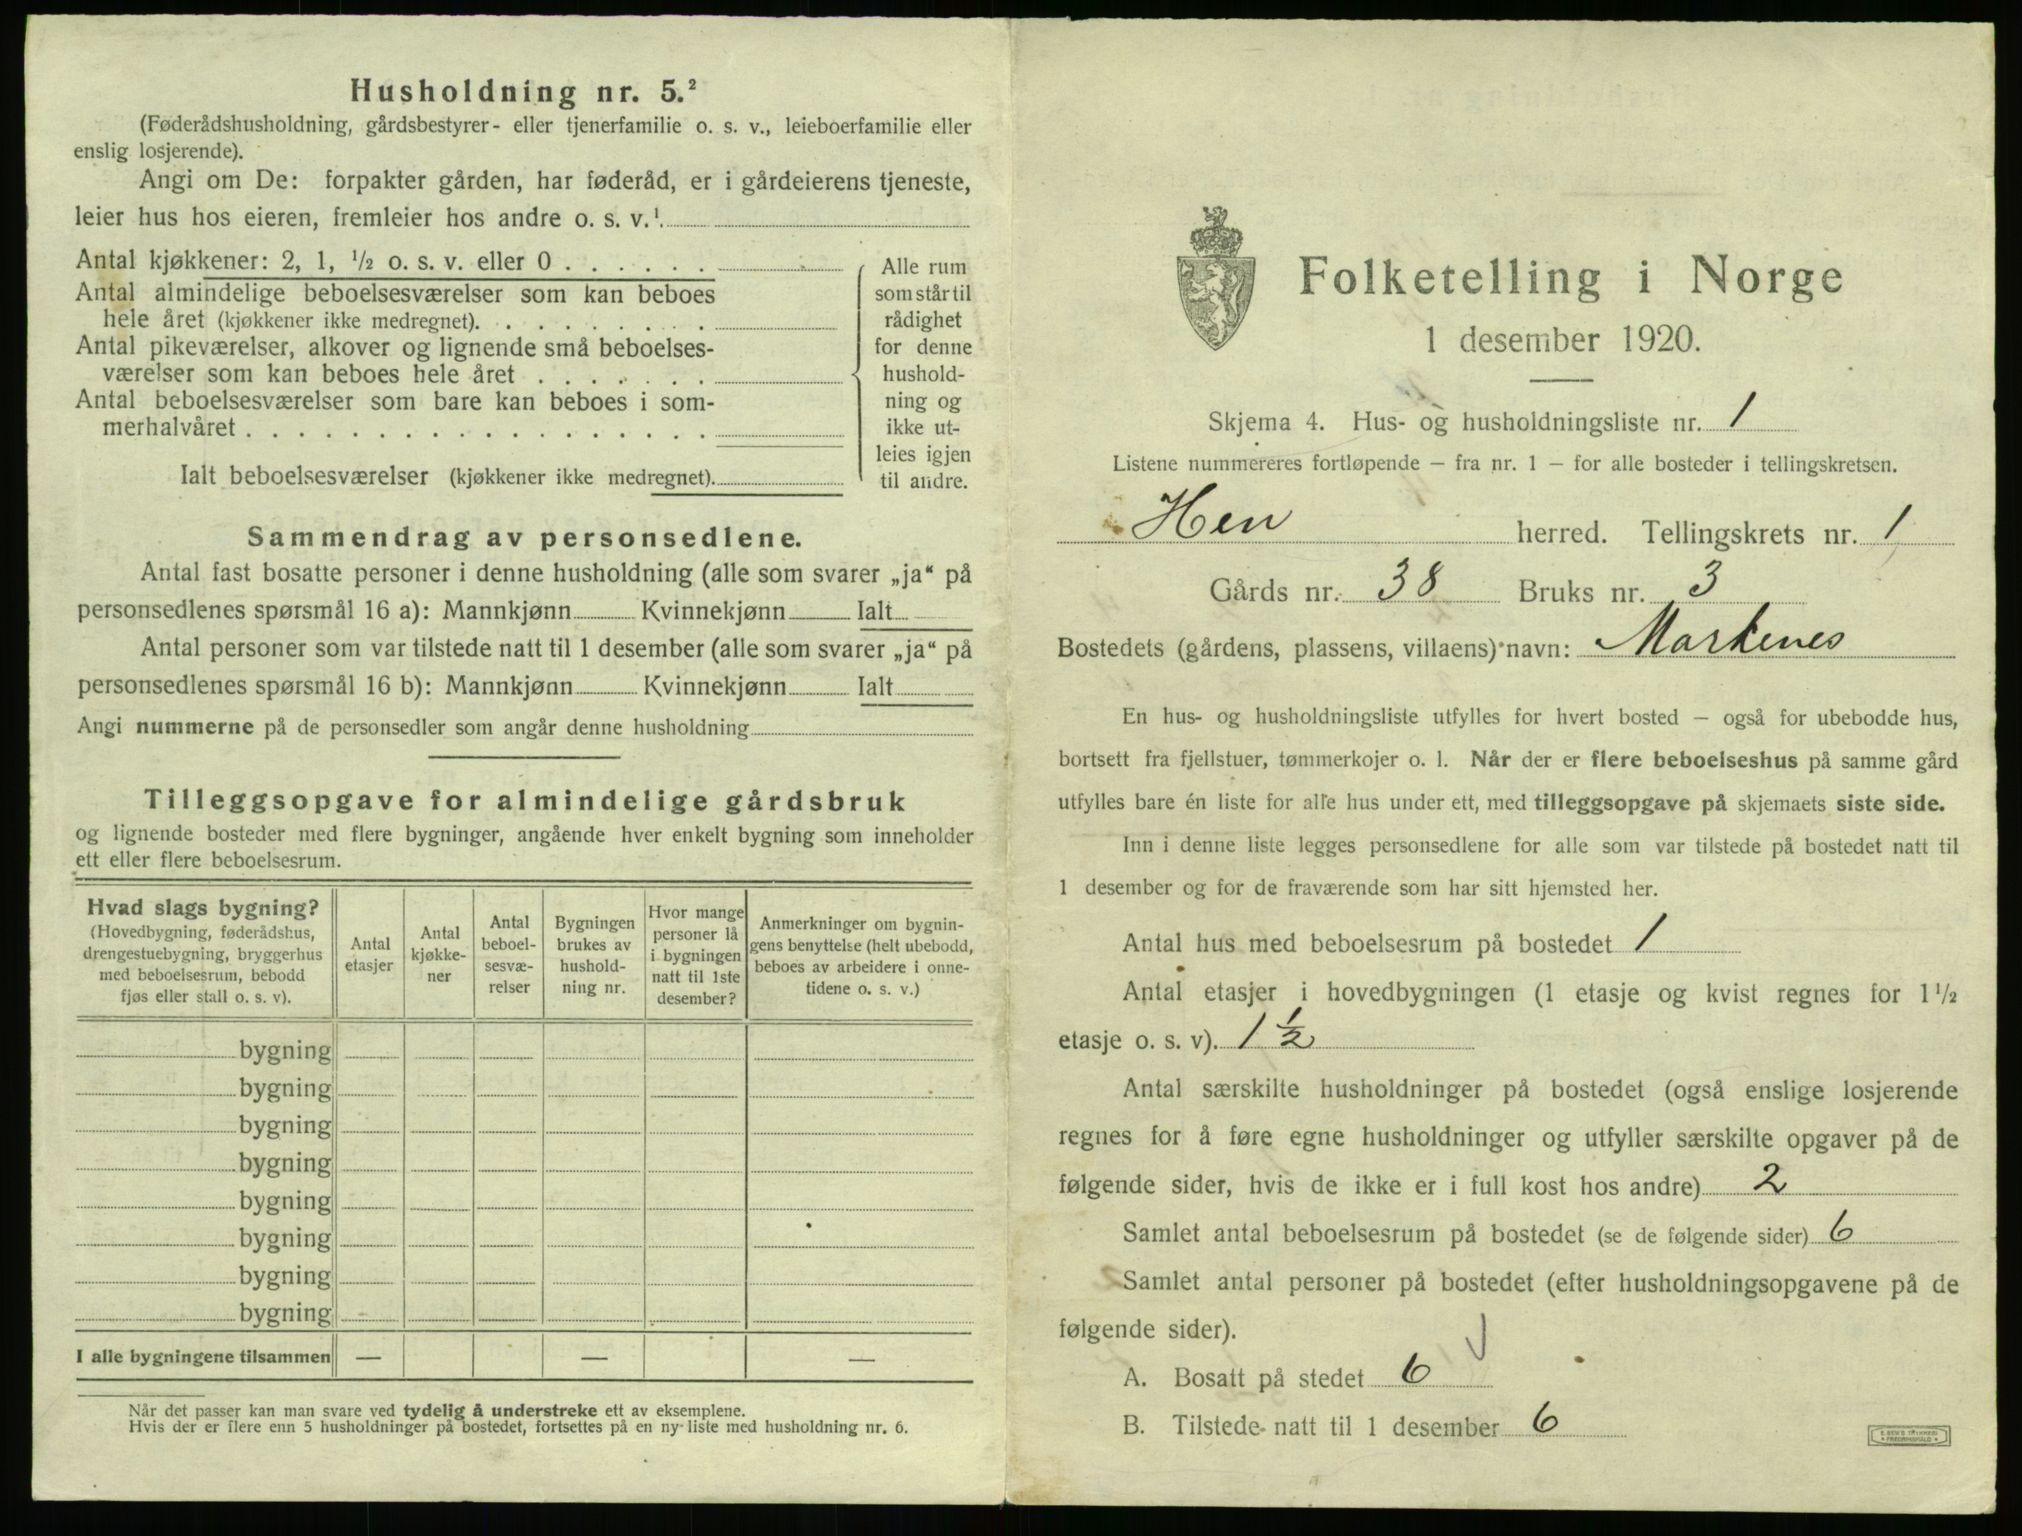 Husholdning nr. 5.²
(Føderådshusholdning, gårdsbestyrer- eller tjenerfamilie o. s. v., leieboerfamilie eller
enslig losjerende).
Angi om De: forpakter gården, har føderåd, er i gårdeierens tjeneste,
leier hus hos eieren, fremleier hos andre o. s. v.¹
Antal kjøkkener: 2, 1, ½ o. s. v. eller 0
Antal almindelige beboelsesværelser som kan beboes
hele året (kjøkkener ikke medregnet).
Antal pikeværelser, alkover og lignende små beboelses-
værelser som kan beboes hele året
Antal beboelsesværelser som bare kan beboes i som-
merhalvåret
Ialt beboelsesværelser (kjøkkener ikke medregnet).
Alle rum
som står til
rådighet
for denne
hushold-
ning og
ikke ut-
leies igjen
til andre.
Sammendrag av personsedlene.
Antal fast bosatte personer i denne husholdning (alle som svarer „ja“ på
personsedlenes spørsmål 16 a): Mannkjønn Kvinnekjønn Ialt
Antal personer som var tilstede natt til 1 desember (alle som svarer „ja“ på
personsedlenes spørsmål 16 b): Mannkjønn Kvinnekjønn Ialt
Angi nummerne på de personsedler som angår denne husholdning
Tilleggsopgave for almindelige gårdsbruk
og lignende bosteder med flere bygninger, angående hver enkelt bygning som inneholder
ett eller flere beboelsesrum.
Hvad slags bygning?
(Hovedbygning, føderådshus,
drengestuebygning, bryggerhus
med beboelsesrum, bebodd
fjøs eller stall o. s. v).
Antal
etasjer
Antal
kjøkke-
ner
Antal
beboel-
sesvæ-
relser
Bygningen
brukes av
hushold-
ning nr.
Hvor mange
personer lå
i bygningen
natt til 1ste
desember?
Anmerkninger om bygnin-
gens benyttelse (helt ubebodd,
beboes av arbeidere i onne-
tidene o. s. v.)
bygning
bygning
bygning
bygning
bygning
bygning
bygning
bygning
I alle bygningene tilsammen — — —
Når det passer kan man svare ved tydelig å understreke ett av eksemplene.
Hvis der er flere enn 5 husholdninger på bostedet, fortsettes på en ny liste med husholdning nr. 6.
Folketelling i Norge
1 desember 1920.
Skjema 4. Hus- og husholdningsliste nr. 1
Listene nummereres fortløpende – fra nr. 1 – for alle bosteder i tellingskretsen.
Hen herred. Tellingskrets nr. 1
Gårds nr. 38 Bruks nr. 3
Bostedets (gårdens, plassens, villaens) navn: Markenes
En hus- og husholdningsliste utfylles for hvert bosted – også for ubebodde hus,
bortsett fra fjellstuer, tømmerkojer o. l. Når der er flere beboelseshus på samme gård
utfylles bare én liste for alle hus under ett, med tilleggsopgave på skjemaets siste side.
Inn i denne liste legges personsedlene for alle som var tilstede på bostedet natt til
1 desember og for de fraværende som har sitt hjemsted her.
Antal hus med beboelsesrum på bostedet 1
Antal etasjer i hovedbygningen (1 etasje og kvist regnes for 1½
etasje o. s. v). 1½
Antal særskilte husholdninger på bostedet (også enslige losjerende
regnes for å føre egne husholdninger og utfyller særskilte opgaver på de
følgende sider, hvis de ikke er i full kost hos andre) 2
Samlet antal beboelsesrum på bostedet (se de følgende sider) 6
Samlet antal personer på bostedet (efter husholdningsopgavene på de
følgende sider).
A. Bosatt på stedet 6
B. Tilstede natt til 1 desember 6